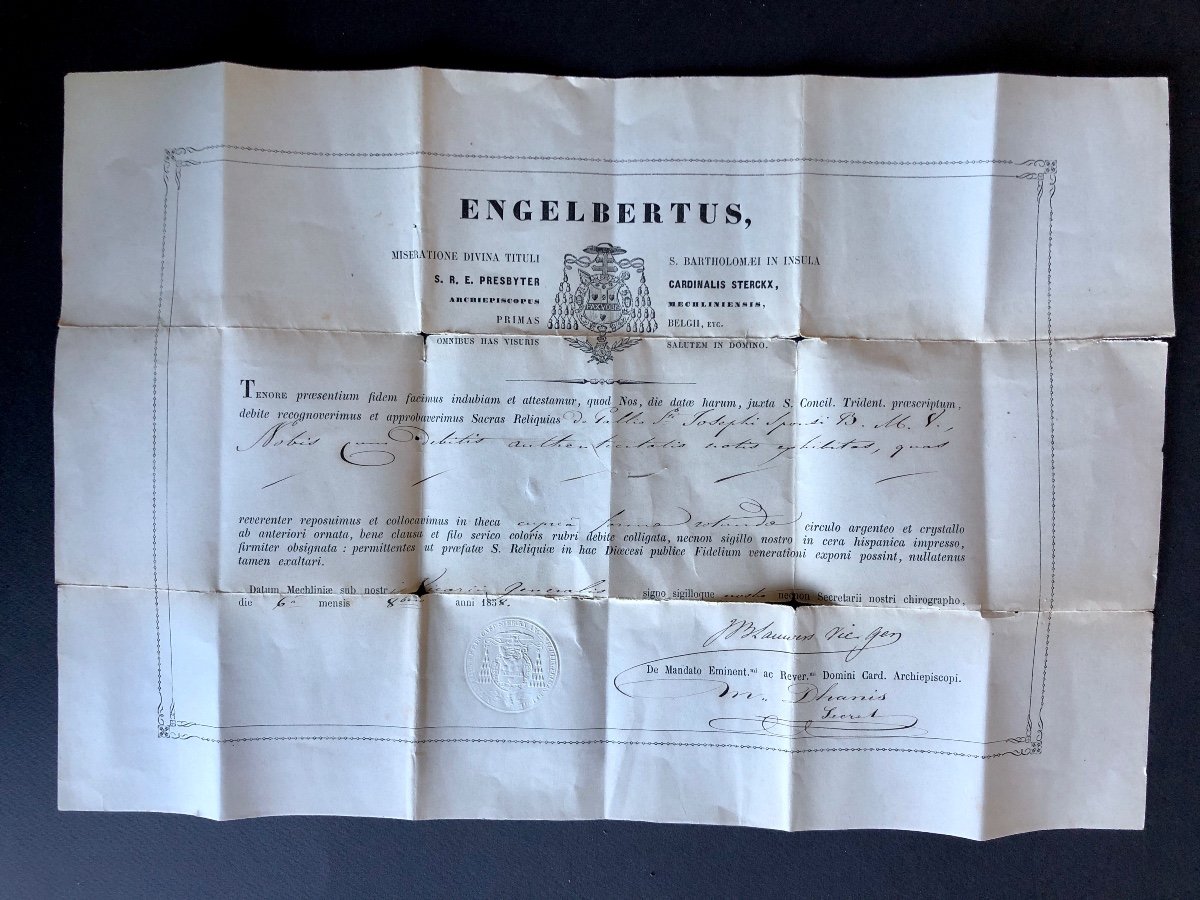 ENGELBERTUS,
MISERATIONE DIVINA TITULI S. BARTHOLOMÆI IN INSULA
S. R. E. PRESBYTER CARDINALIS STERCKX,
ARCHIEPISCOPUS MECHLINIENSIS,
PRIMAS BELGII, ETC.
OMNIBUS HAS VISURIS SALUTEM IN DOMINO.
TENORE præsentium fidem facimus indubiam et attestamur, quod Nos, die datæ harum, juxta S. Concil. Trident. præscriptum,
debite recognoverimus et approbaverimus Sacras Reliquias de Pallio Sti Josephi Sponsi B. M. V.,
Nobis cum debitis authenticitatis notis exhibitas, quas
reverenter reposuimus et collocavimus in theca cupreâ formæ rotundæ circulo argenteo et crystallo
ab anteriori ornata, bene clausa et filo serico coloris rubri debite colligata, necnon sigillo nostro in cera hispanica impresso,
firmiter obsignata : permittentes ut præfatæ S. Reliquiæ in hac Diœcesi publice Fidelium venerationi exponi possint, nullatenus
tamen exaltari.
Datum Mechliniæ sub nostri Vicarii Generalis signo sigilloque nostro necnon Secretarii nostri chirographo,
die 6a mensis 8bris anni 1858.
JBLauwers Vic. Gen
De Mandato Eminent.mi ac Rever.mi Domini Card. Archiepiscopi.
Dhanis
Secret